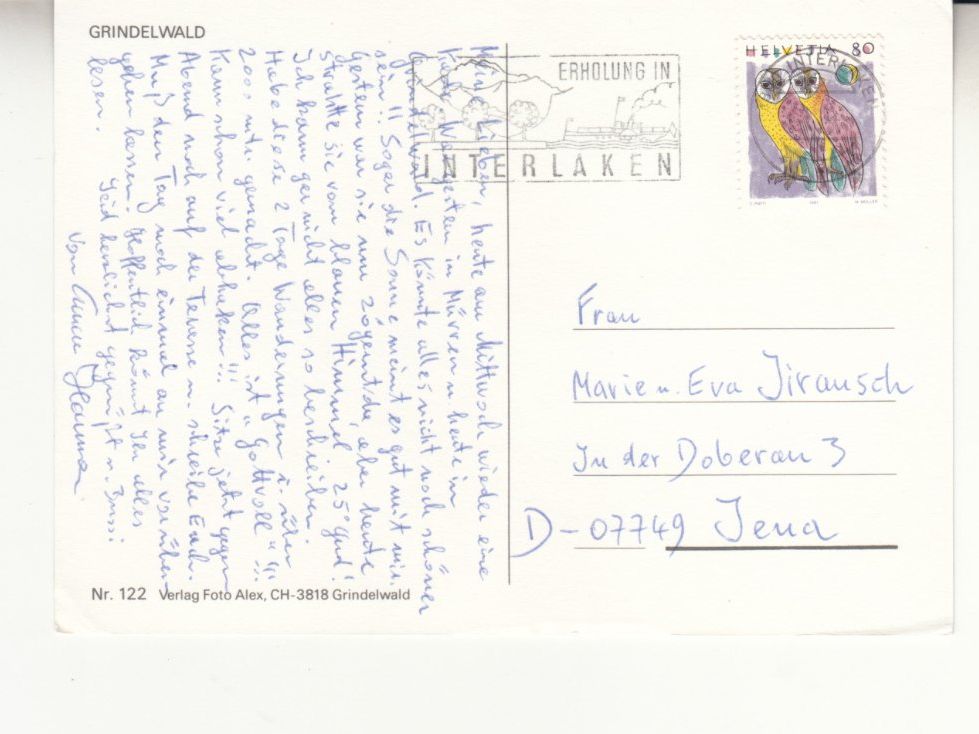 GRINDELWALD
Meine Lieben, heute am Mittwoch wieder eine
Karte. War gestern in Mürren u. heute in
Grindelwald. Es könnte alles nicht noch schöner
sein!! Sogar die Sonne meint es gut mit mir.
Gestern war sie nur zögernd da, aber heute
strahlte sie vom blauen Himmel 25° gut!
Ich kann gar nicht alles so beschreiben.
Habe diese 2 Tage Wanderungen
2000 m gemacht. Alles ist "Gottvoll"!!!
Kann schon viel abhaken!!! Sitze jetzt gegen
Abend noch auf der Terrasse u. schreibe Euch.
Muß den Tag noch einmal an mir vorüber
gehen lassen. Hoffentlich könnt Ihr alles
lesen. Seid herzlichst gegrüßt u. Bussi
von Eurer
Nr. 122 Verlag Foto Alex, CH-3818 Grindelwald
ERHOLUNG IN
INTERLAKEN
HELVETIA 80
INTERLAKEN
1991
Frau
Marie u. Eva Jirausch
In der Doberau 3
D-07749 Jena